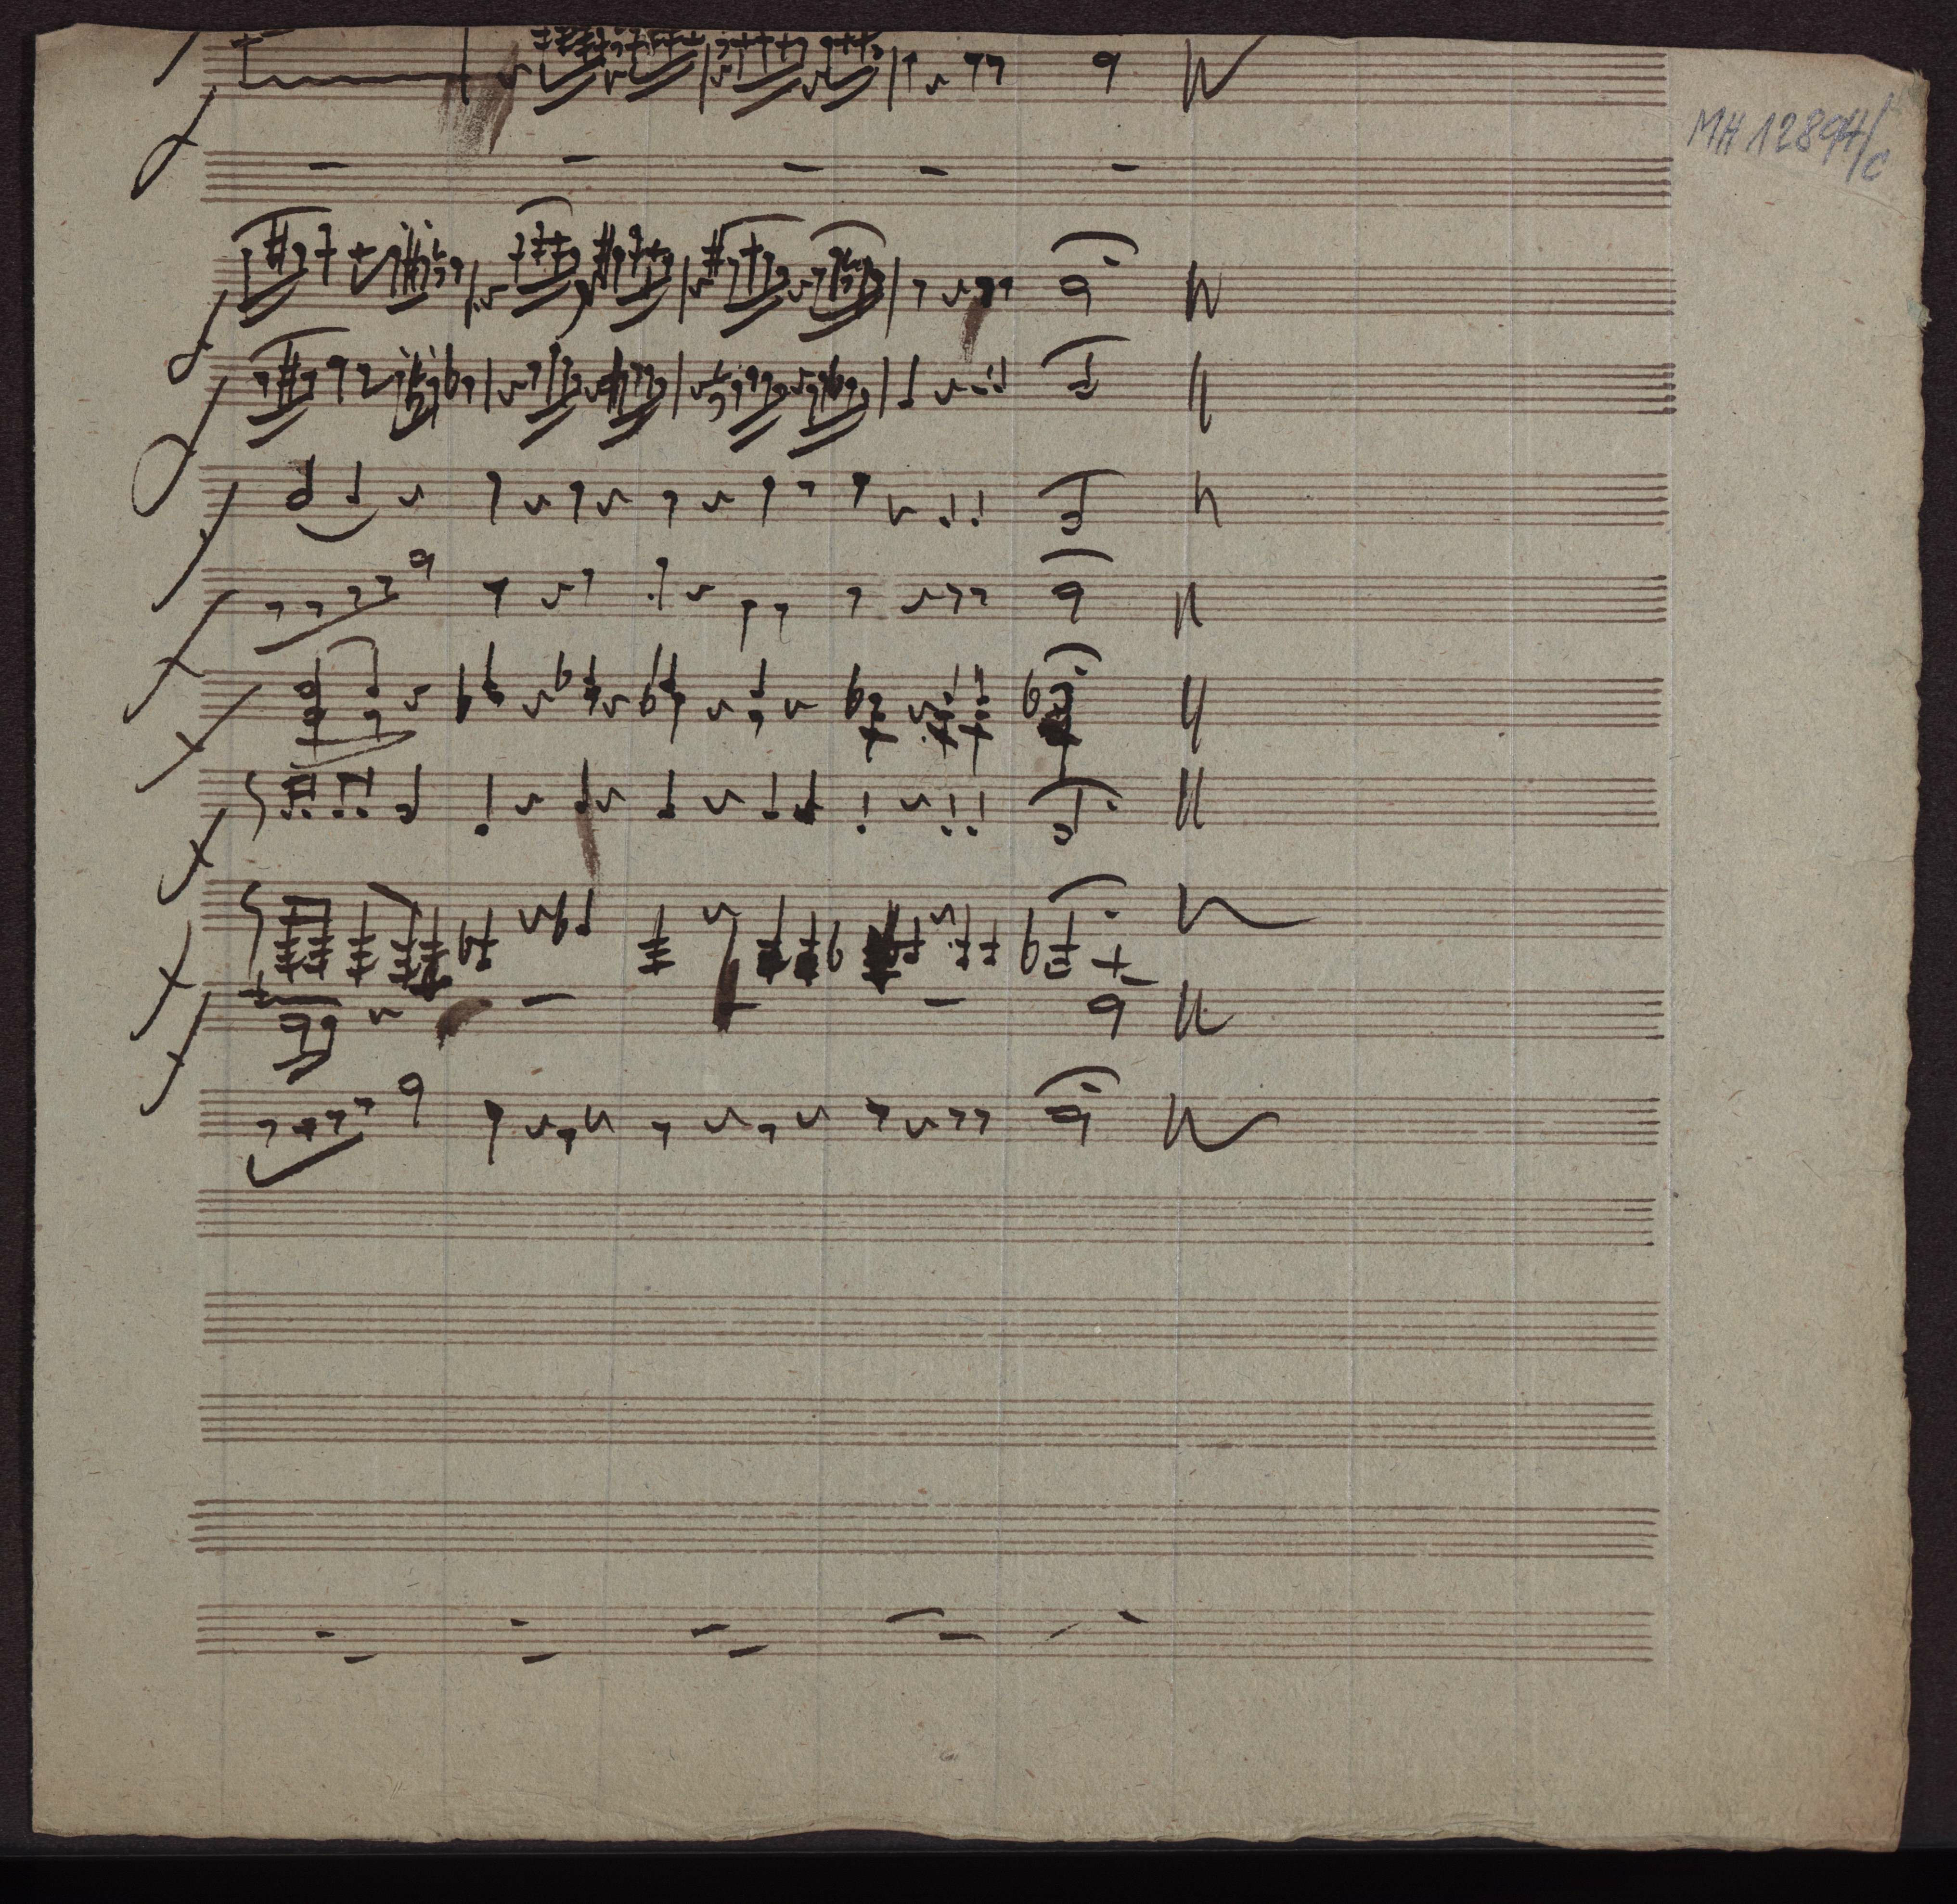 MH 12894/c